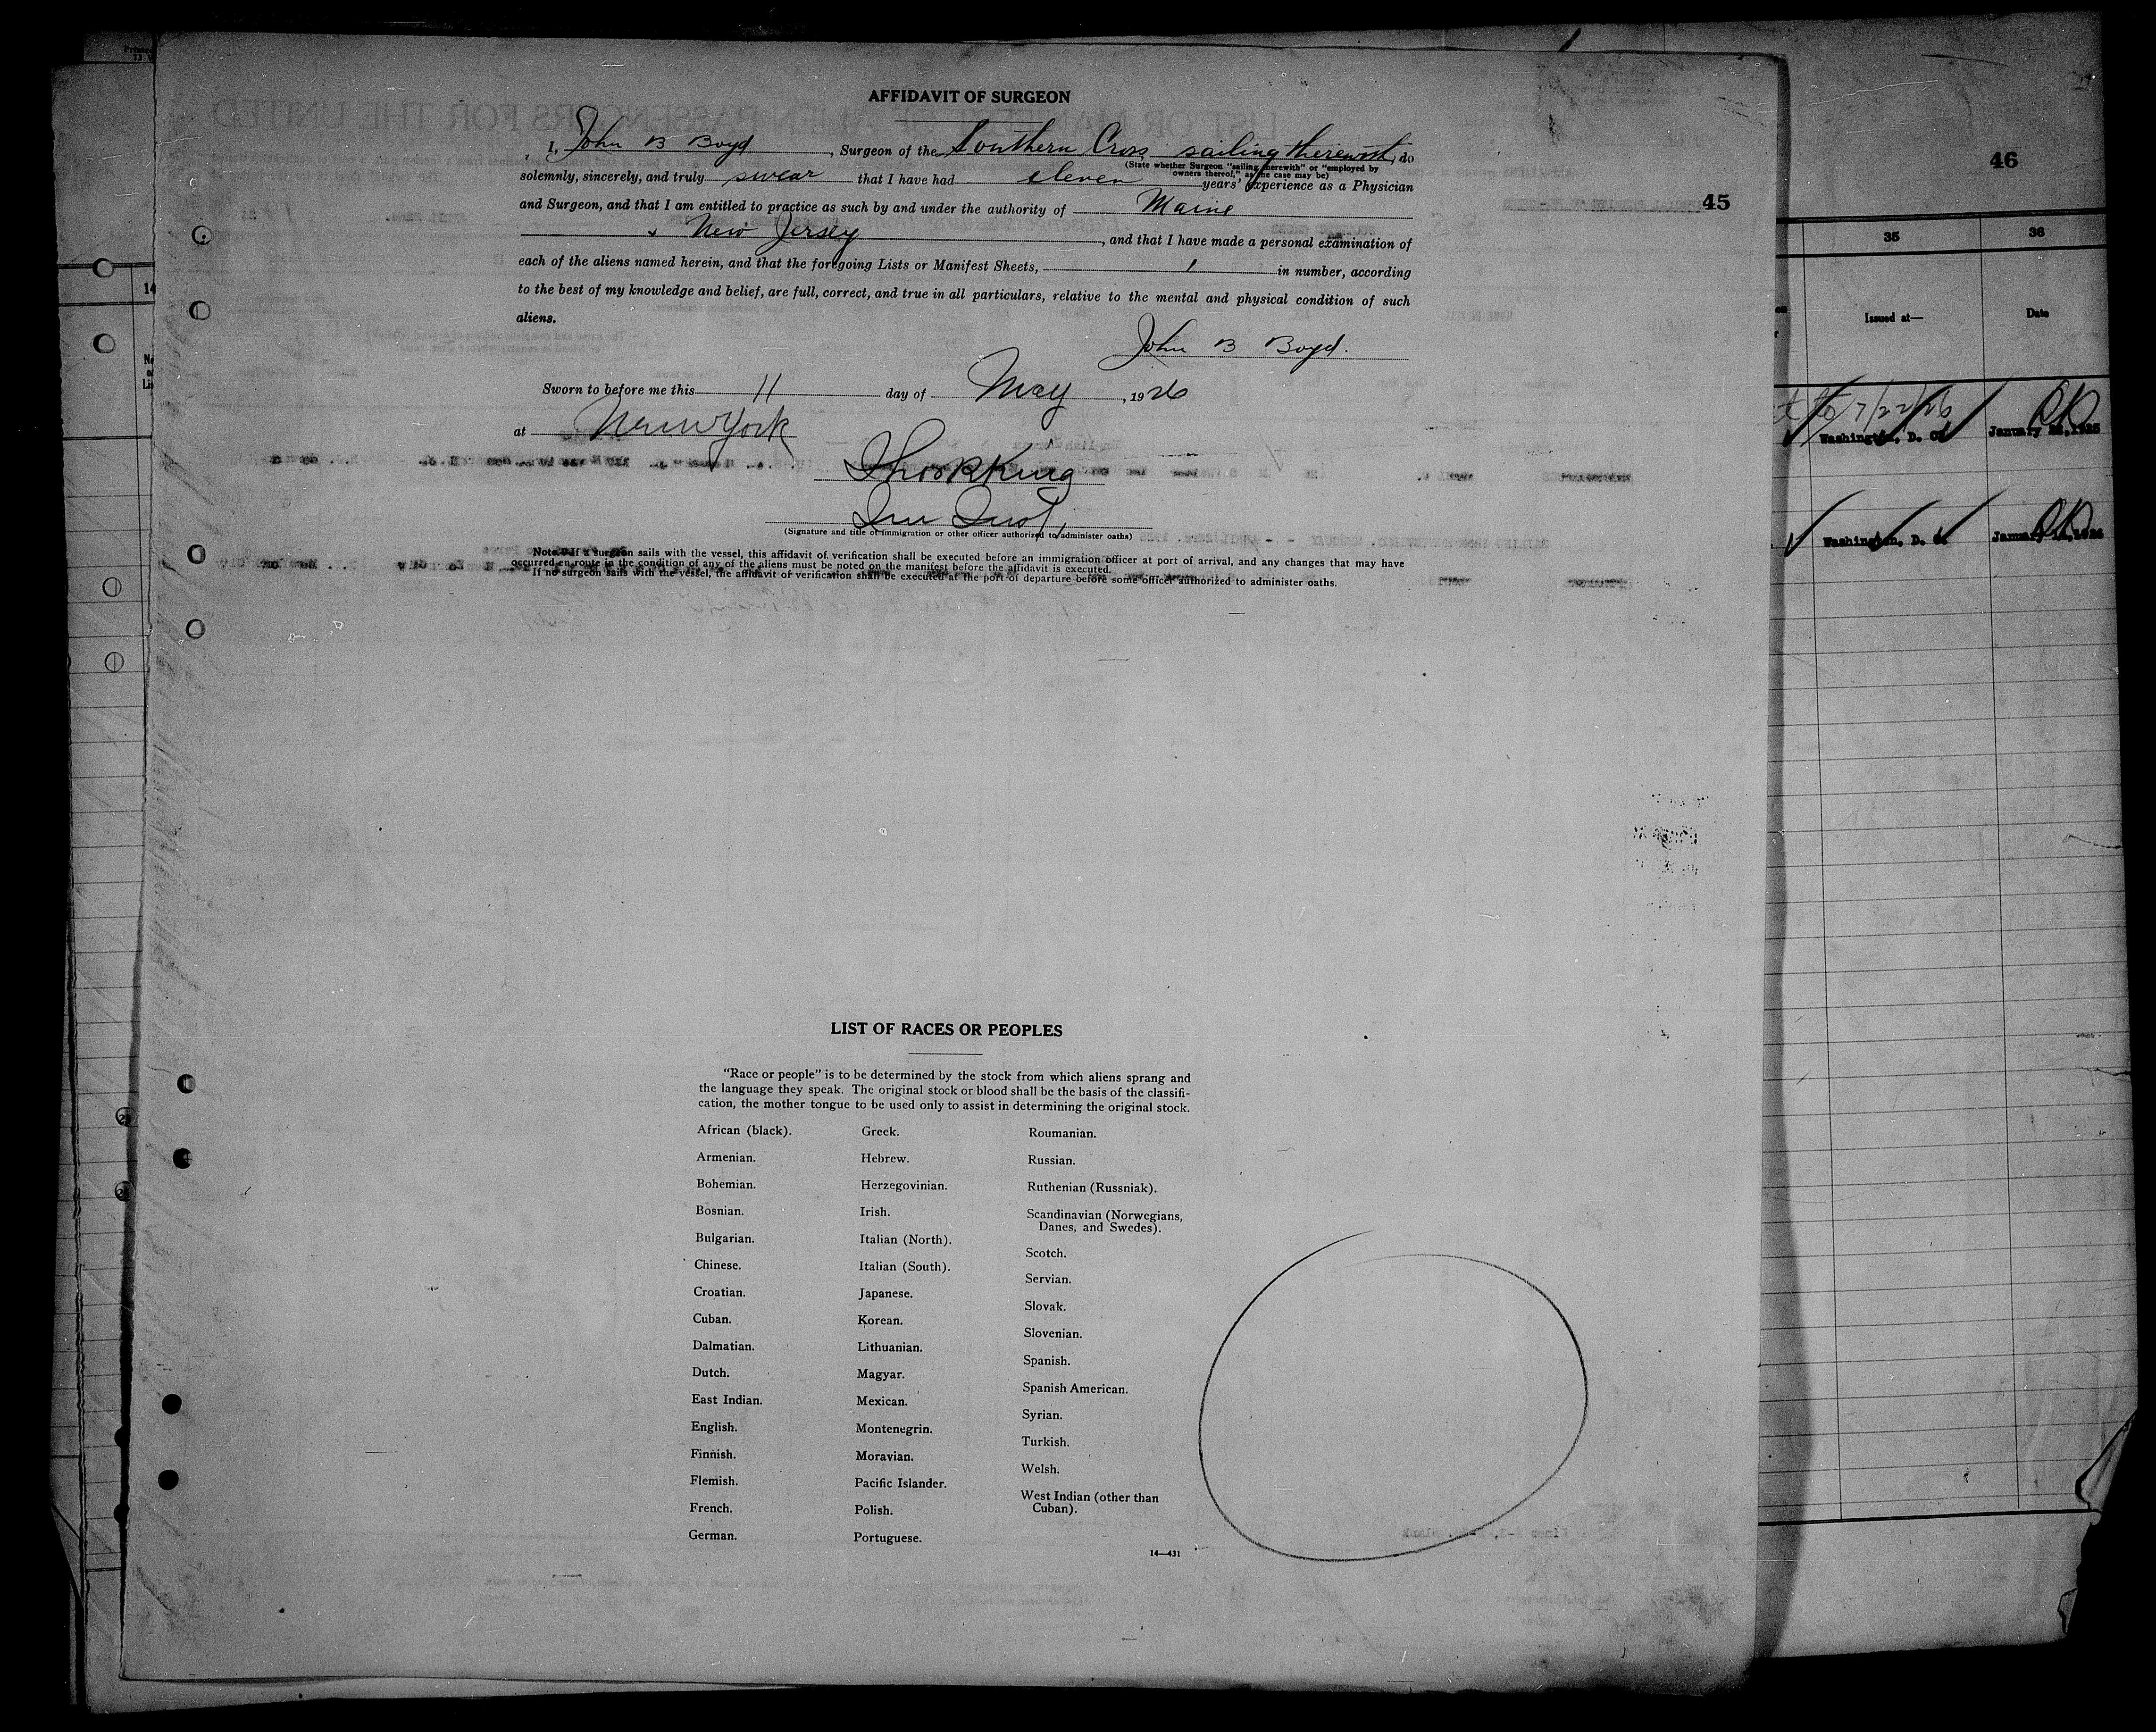 AFFIDAVIT OF SURGEON
I, John B Boyd, Surgeon of the Southern Cross sailing therewith, do
(State whether Surgeon "sailing therewith" or "employed by
owners thereof," as the case may be)
solemnly, sincerely, and truly swear that I have had eleven years' experience as a Physician
and Surgeon, and that I am entitled to practice as such by and under the authority of Maine
New Jersey, and that I have made a personal examination of
each of the aliens named herein, and that the foregoing Lists or Manifest Sheets, 1 in number, according
to the best of my knowledge and belief, are full, correct, and true in all particulars, relative to the mental and physical condition of such
aliens.
John B Boyd.
Sworn to before me this 11 day of May, 1926
at New York
(Signature and title of immigration or other officer authorized to administer oaths)
Note.—If a surgeon sails with the vessel, this affidavit of verification shall be executed before an immigration officer at port of arrival, and any changes that may have
occurred en route in the condition of any of the aliens must be noted on the manifest before the affidavit is executed.
If no surgeon sails with the vessel, the affidavit of verification shall be executed at the port of departure before some officer authorized to administer oaths.
45
46
35
36
Issued at—
Date
7/22/26
Washington, D. C.
January
Washington, D. C.
January
LIST OF RACES OR PEOPLES
"Race or people" is to be determined by the stock from which aliens sprang and
the language they speak. The original stock or blood shall be the basis of the classifi-
cation, the mother tongue to be used only to assist in determining the original stock.
African (black).
Armenian.
Bohemian.
Bosnian.
Bulgarian.
Chinese.
Croatian.
Cuban.
Dalmatian.
Dutch.
East Indian.
English.
Finnish.
Flemish.
French.
German.
Greek.
Hebrew.
Herzegovinian.
Irish.
Italian (North).
Italian (South).
Japanese.
Korean.
Lithuanian.
Magyar.
Mexican.
Montenegrin.
Moravian.
Pacific Islander.
Polish.
Portuguese.
Roumanian.
Russian.
Ruthenian (Russniak).
Scandinavian (Norwegians,
Danes, and Swedes).
Scotch.
Servian.
Slovak.
Slovenian.
Spanish.
Spanish American.
Syrian.
Turkish.
Welsh.
West Indian (other than
Cuban).
14—431